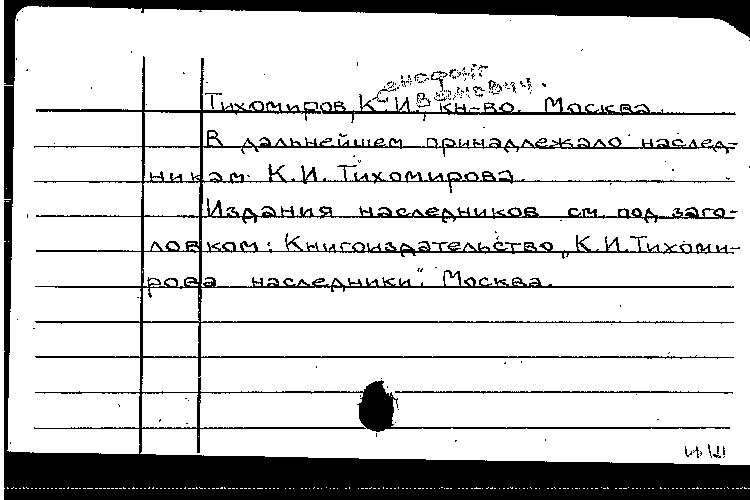 енофонт
Иванович.
Тихомиров, К. И., кн-во. Москва.
В дальнейшем принадлежало наслед-
никам К.И. Тихомирова.
Издания наследников см. под заго-
ловком: Книгоиздательство „К.И.Тихоми-
рова наследники". Москва.